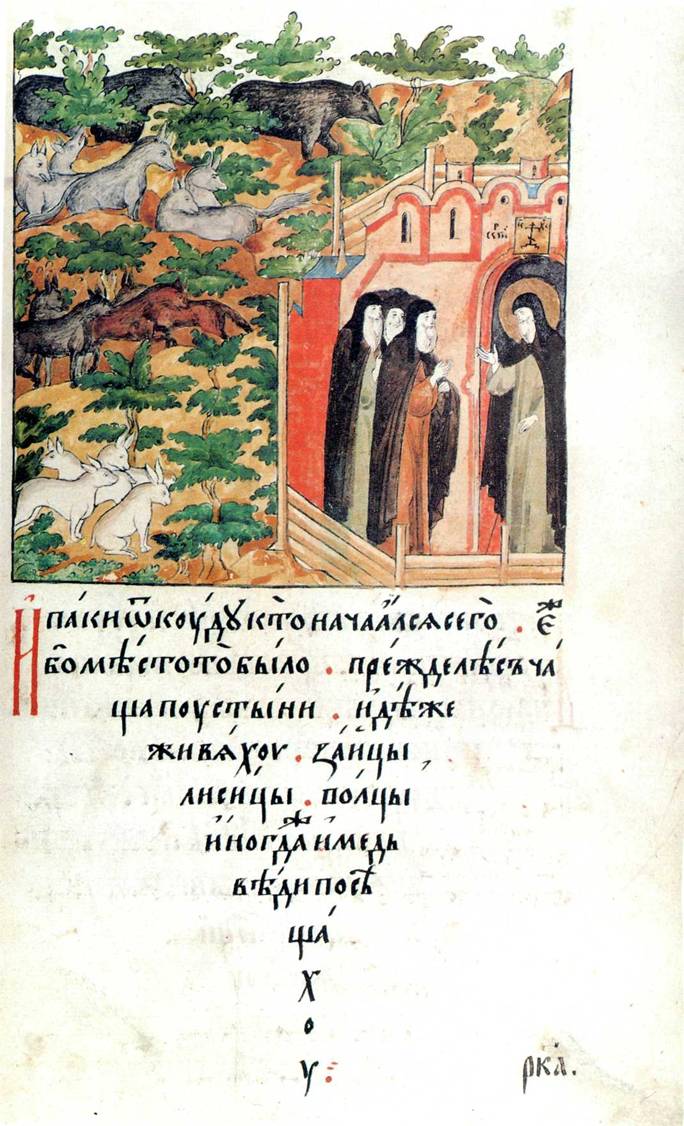 И҆ па́ки ѿкоу́дꙋ кто̀ начаа́лсѧ сего̀ . є҆́ⷤ
бо̀ мѣ́сто то̀ бы́ло . пре́жде лѣ́съ ча́
ща поусты́ни . и҆дѣ́же
живѧ́хоу . за́йцы ,
лиси́цы . во́лцы
и҆ногда́ⷤ и҆ медь
вѣ́ди посѣ
ща́
х
о
у :~
рка.